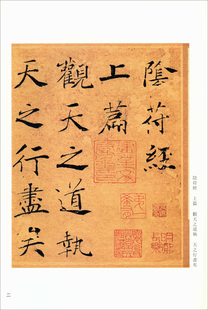 陰符經
上篇
觀天之道執
天之行盡矣
陰符經　上篇　觀天之道執　天之行盡矣